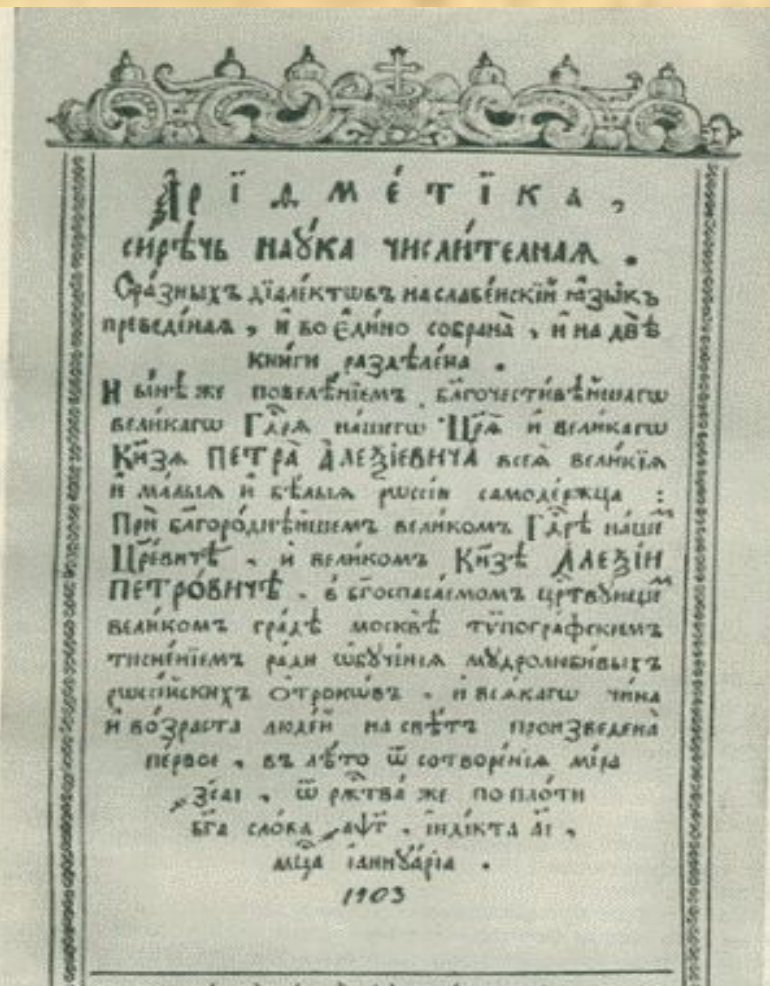 А҆рїѳме́тїка,
сирѣ́чь наꙋ́ка числи́телнаѧ.
С̾ра́зныхъ дїале́ктѡвъ на славе́нскїй ꙗ҆зы́къ
преведе́наѧ, и҆ во є҆ди́но собрана̀, и҆ на двѣ̀
кни́ги раздѣле́на.
Ны́нѣ же повелѣ́нїемъ благочести́вѣйшагѡ
вели́кагѡ Гд҃рѧ на́шегѡ Цр҃ѧ̀ и҆ вели́кагѡ
Кн҃зѧ ПЕТРА̀ А҆ЛЕѮЇЕВИЧА всеѧ̀ вели́кїѧ
и҆ ма́лыѧ и҆ бѣ́лыѧ рѡссі́и самоде́ржца :
Прѝ благоро́днѣйшемъ вели́комъ Гд҃рѣ на́шемⷨ
Цр҃е́вичѣ, и҆ вели́комъ Кн҃зѣ А҆ЛЕѮІ́И
ПЕТРО́ВИЧѢ. в̾ бг҃оспаса́емомъ ца́рствꙋющеⷨ
вели́комъ гра́дѣ москвѣ̀ тѵпогра́фскимъ
тисне́нїемъ ра́ди ѡ҆бꙋче́нїѧ мꙋдролюби́выхъ
рѡссі́йскихъ ѻ҆́трокѡвъ. и҆ всѧ́кагѡ чи́на
и҆ во́зраста люде́й на свѣ́тъ произведена̀
пе́рвое, въ лѣ́то ѿ сотворе́нїѧ мі́ра
҂зсаі, ѿ ржⷭ҇тва́ же по пло́ти
бг҃а сло́ва ҂аѱг҃. і҆нді́кта аі,
мцⷭ҇а і҆аннꙋа́рїа.
1703